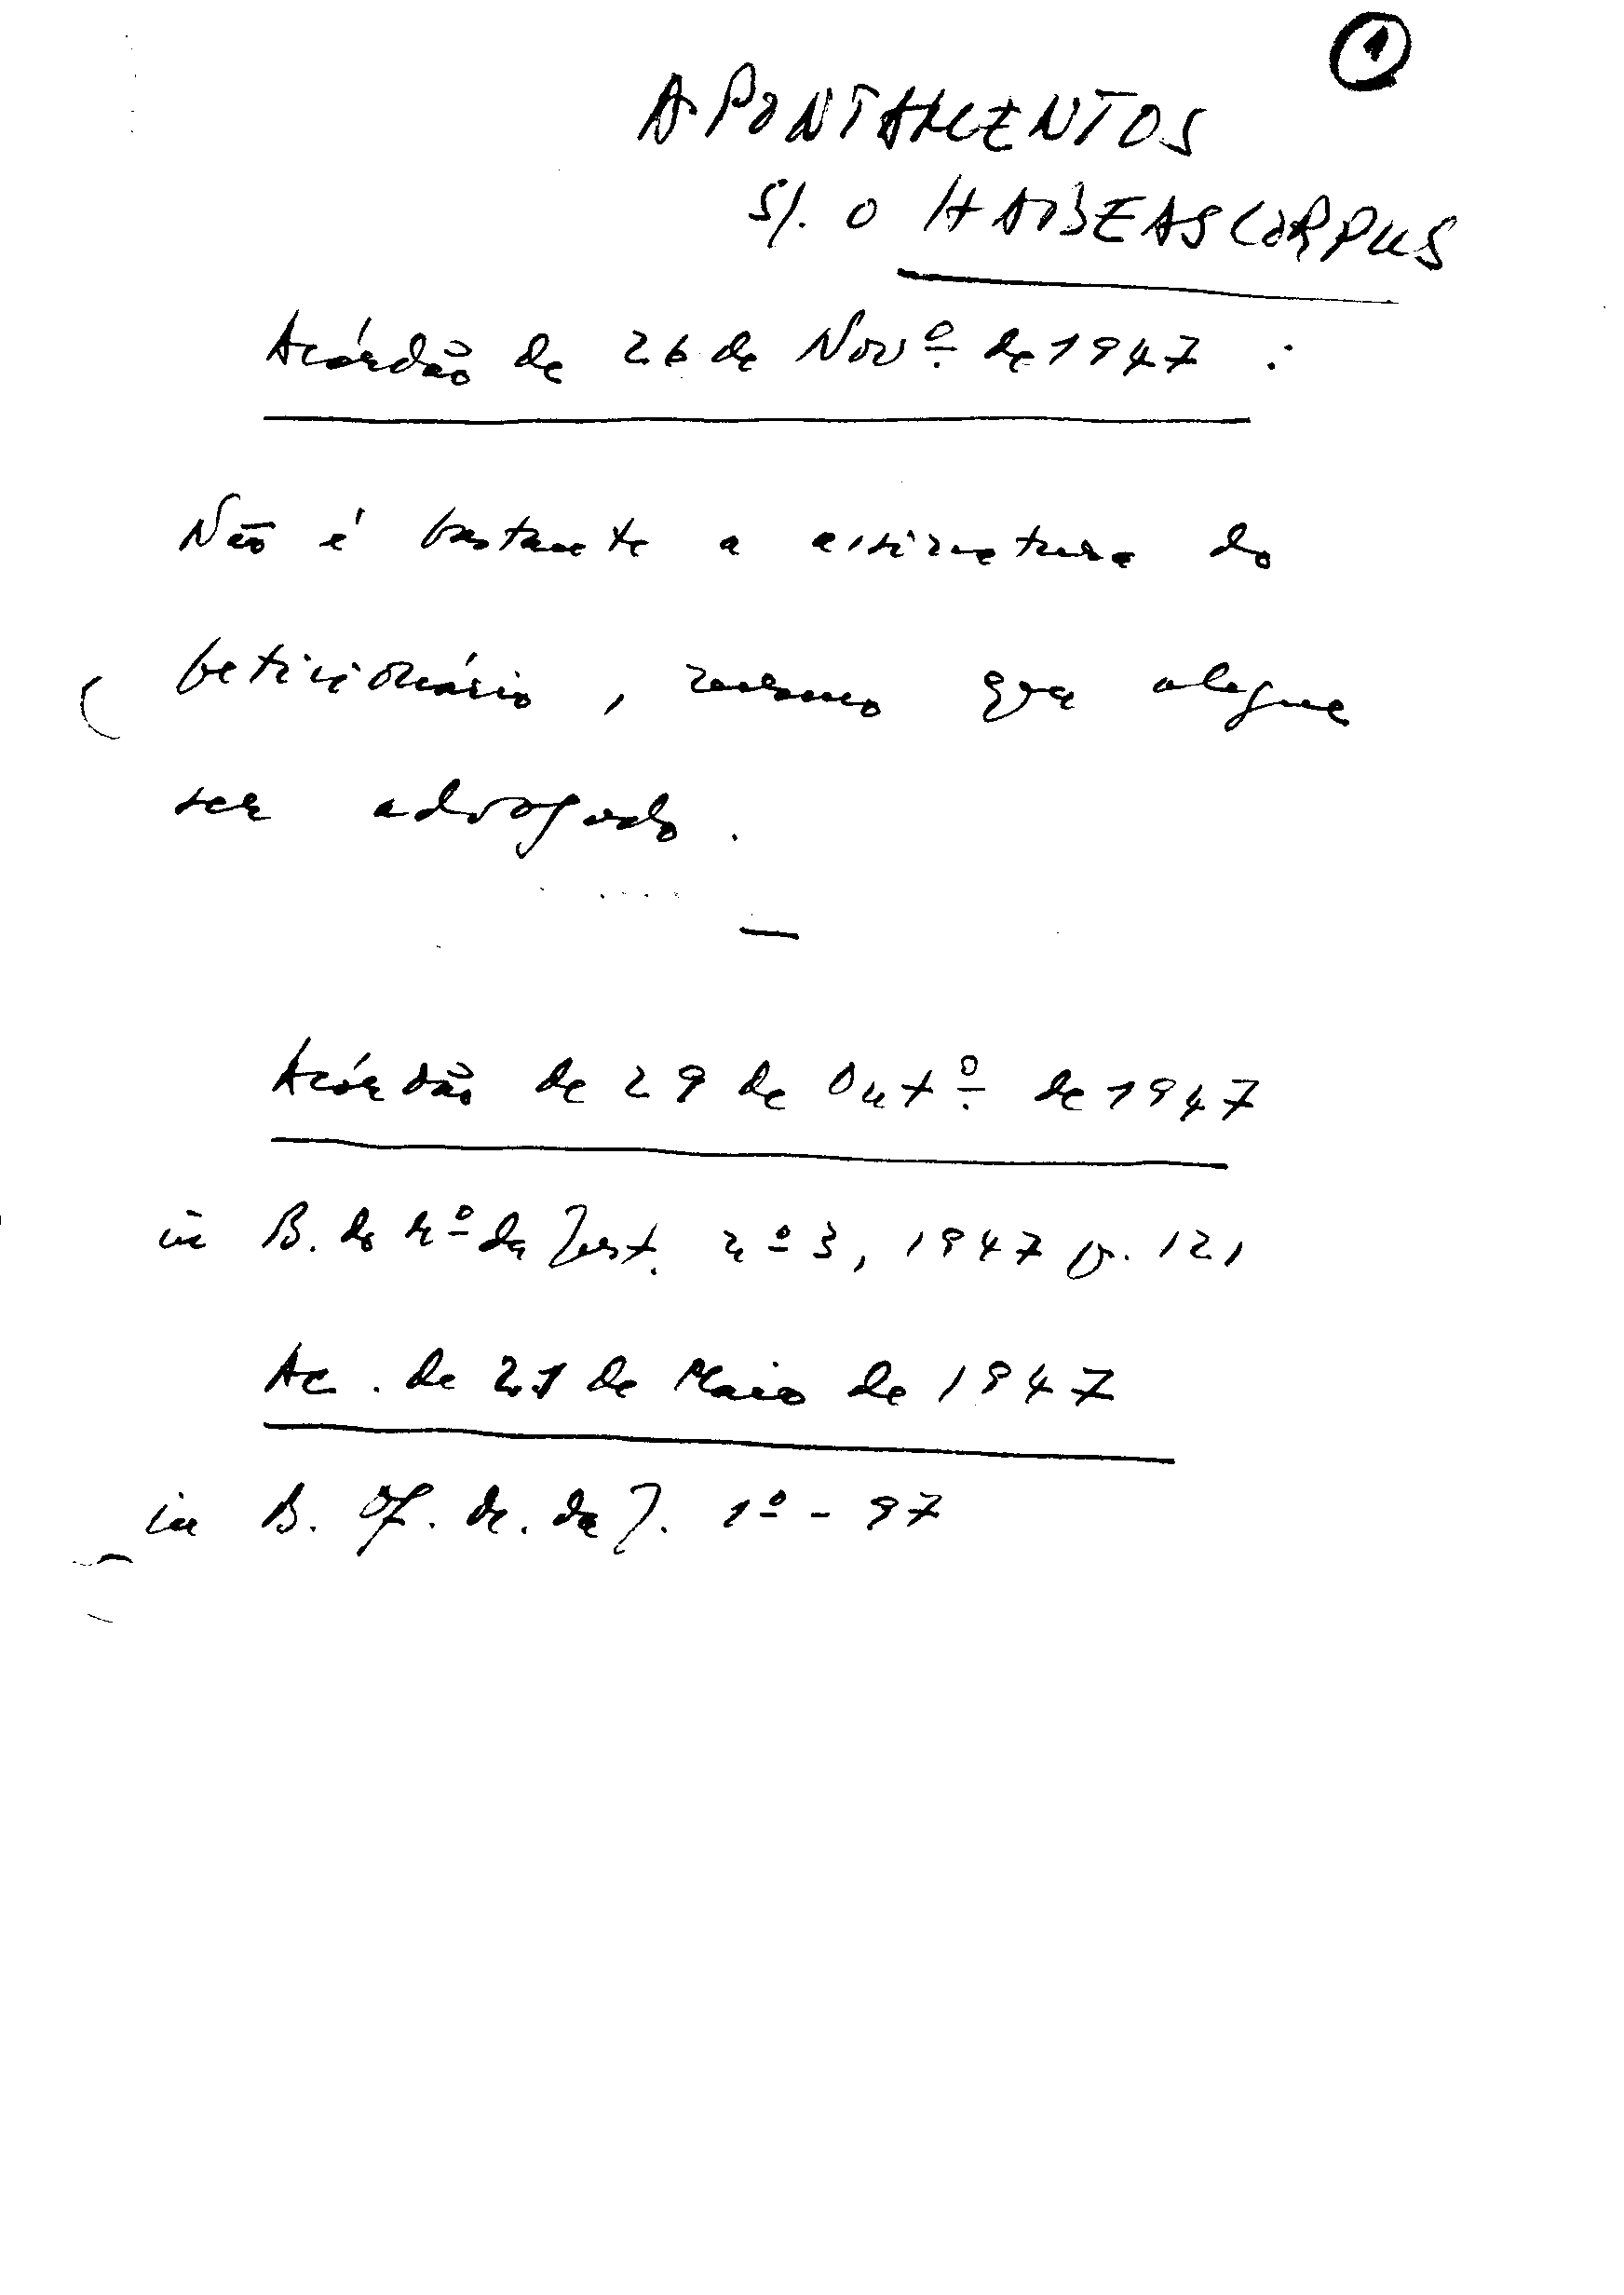 1
APONTAMENTOS
S/. O HABEAS CORPUS
Acórdão de 26 de Novº. de 1947 :
Não é bastante a assinatura do
peticionário, mesmo que alegue
ser advogado.
—
Acórdão de 29 de Outº. de 1947
in B. do Mº da Just. nº 3, 1947 p. 121
Ac. de 21 de Maio de 1947
in B. Of. M. da J. 1º - 97